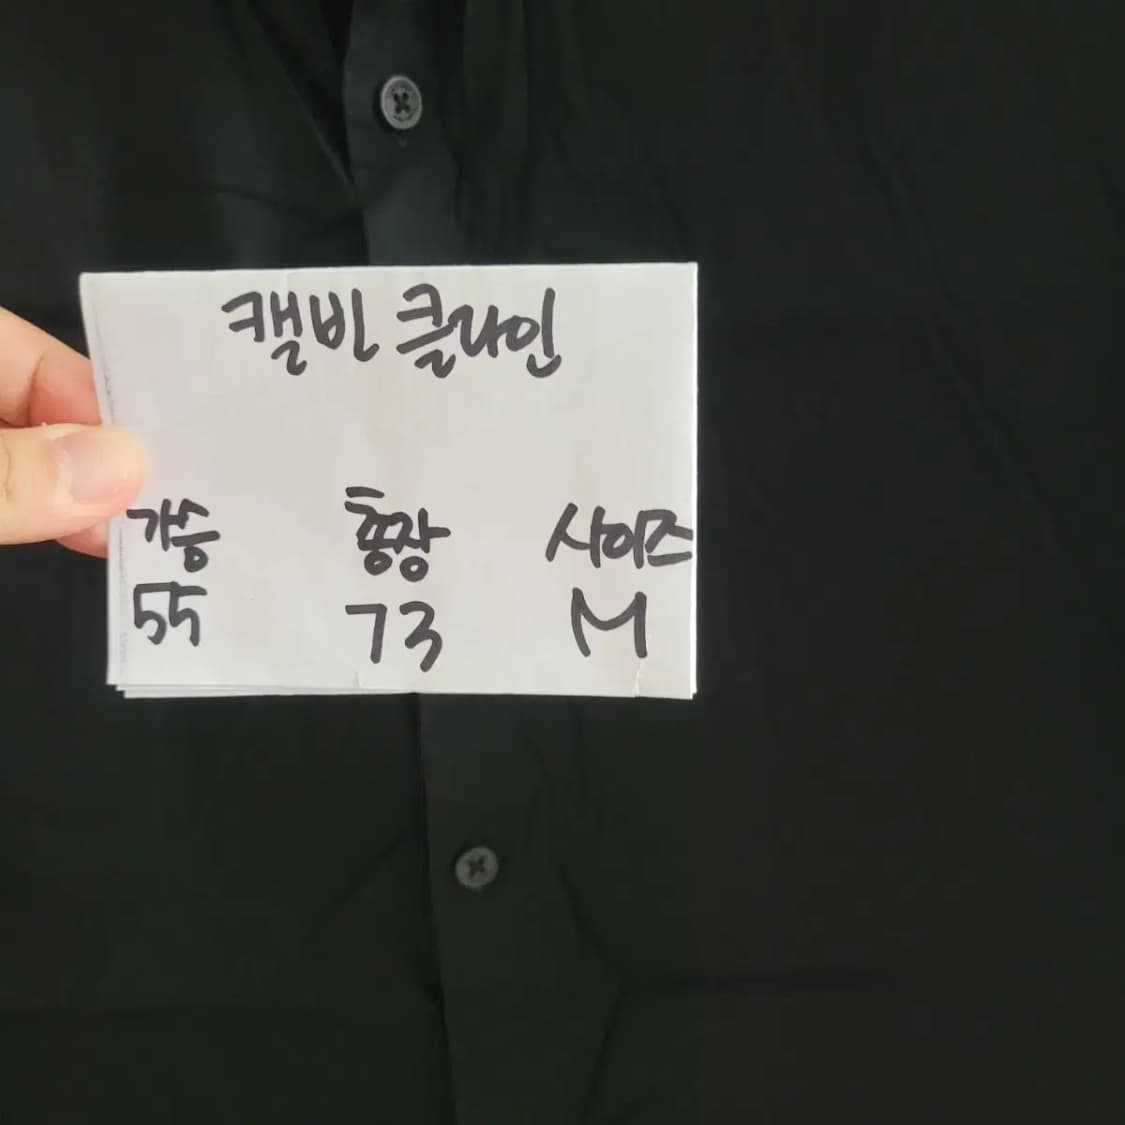 캘빈 클라인
가슴 총장 사이즈
55 73 M